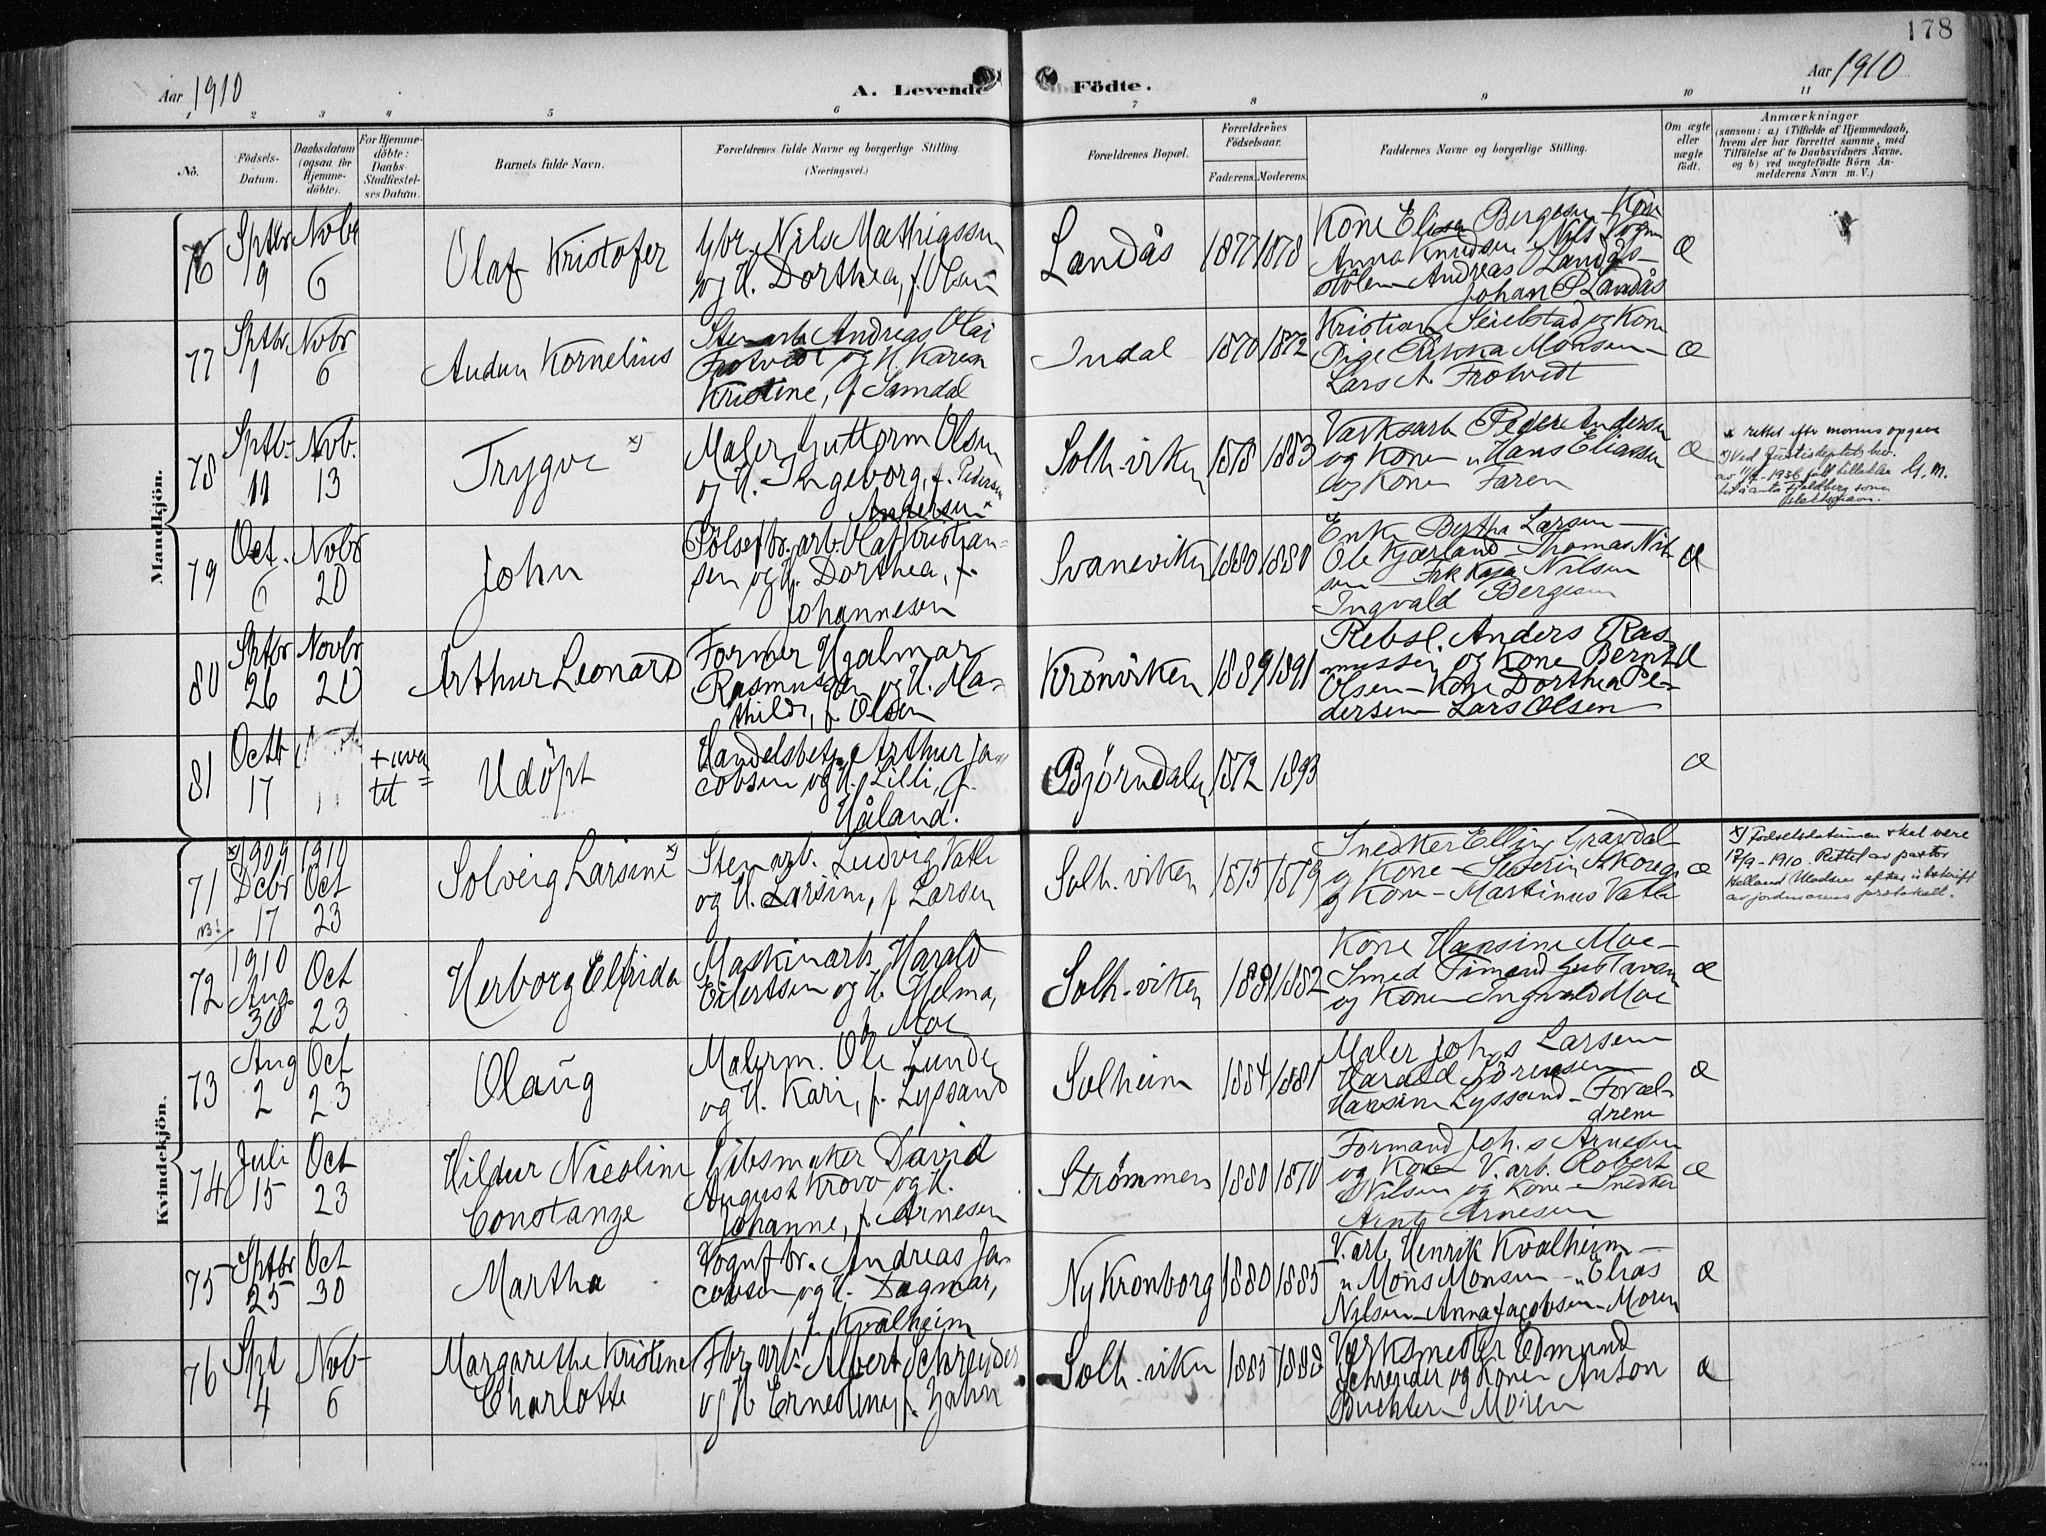 178
Aar 1910
A. Levende Födte.
Aar 1910
1 2 3 4 5 6 7 8 9 10 11
No.
Födsels-Datum.
Daabsdatum (ogsaa for Hjemme-döbte).
For Hjemme-döbte: Daabs-Stadfæstel-ses Datum.
Barnets fulde Navn.
Forældrenes fulde Navne og borgerlige Stilling. (Næringsvei.)
Forældrenes Bopæl.
Forældrenes Födselsaar.
Faderens. Moderens.
Faddernes Navne og borgerlige Stilling.
Om ægte eller uægte födt.
Anmærkninger
(saasom: a) i Tilfælde af Hjemmedaab,
hvem der har forrettet samme, med
Tilföielse af to Daabsvidners Navne.
og b) ved uægtefödte Börn An-
melderens Navn m. V.)
Mandkjön.
76 Sptbr 9 Novbr 6 Olaf Kristofer
Nils Mathiassen
og H. Dorthea, f. Olsen
Landås 1877 1878
Kone Elisa Bergesen - Kone
Anna Knudsen Nils
Andreas Landås-
Johan P Landås
æ
77 Sptbr. 1 Novbr 6 Audun Kornelius
Stenarb. Andreas Olai
Frotvedt og H. Karen
Kristine, f. Samdal
Indal 1870 1872
Kristian Seielstad og Kone
Pige Rikka Monsen
Lars A. Frotvedt
æ
78 Sptb. 11 Novb. 13 Trygve x)
Maler Guttorm Olsen
og H. Ingeborg, f. Pedersen
Andersen x
Solh-viken 1878 1883
Værksarb Peder Andersen
og Kone " Hans Eliassen
og Kone Faren
æ
x rettet efter morens opgave
x) Ved Justisdeptets brev
av 11/2-1936 gitt tilladelse
til å anta Fjeldberg som
slektsnavn.
G. M.
79 Oct. 6 Novbr 20 John
Pölsefbr. arb. Olaf Kristian-
sen og H. Dorthea, f.
Johannesen
Svaneviken 1880 1880
Enke Bertha Larsen
Ole Kjærland - Thomas Nil-
sen Frk Kaja Nilsen
Ingvald Bergesen
æ
80 Sptbr 26 Novbr 20 Arthur Leonard
Former Hjalmar
Rasmussen og H. Ma-
thilde, f. Olsen
Kronviken 1889 1891
Rebsl. Anders Ras-
mussen og Kone Bernt
Olsen - Kone Dorthea Pe-
dersen Lars Olsen
æ
81 Octb 17 Udöpt
Handelsbetj. Arthur Ja-
cobsen og H. Lilli, f.
Håland.
Bjørndalen 1872 1893
æ
Kvindekjön.
71 NB! x) 1909 Dcbr 17 1910 Oct 23 Solveig Larsine x)
Stenarb. Ludvig Vatle
og H. Larsine, f Larsen
Solh. viken 1875 1879
Snedker Elling Gravdal
og Kone - Severin Skauge
og Kone - Martinus Vatle
æ
x) Fodselsdatumen skal være
17/9-1910. Rettet av pastor
Helland Madsen efter utskrift
av jordmorens protokoll.
72 1910 Aug. 30 Oct 23 Herborg Elfrida
Maskinarb. Harald
Eilertsen og H. Helma,
f Moe
Solh-viken 1881 1882
Kone Hansine Moe-
Smed Timand Gustavsen
og Kone Ingvald Moe
æ
73 Aug 2 Oct 23 Olaug
Malerm. Ole Lunde
og H. Kari, f. Lyssand
Solheim 1884 1881
Maler Johs Larsen
Harald Sörensen
Hansine Lyssand - Foræl-
drene
æ
74 Juli 15 Oct 23 Hildur Nicoline
Constanze
Gibsmaker David
August Krovo og H.
Johanne, f. Arnesen
Strømmen 1880 1870
Formand Joh.s Arnesen
og Kone V. arb. Robert
Nilsen og Kone - Snedker
Arnt Arnesen
æ
75 Sptbr 25 Oct 30 Martha
Vognfbr. Andreas Ja-
cobsen og H. Dagmar,
f. Kvalheim
Ny Kronborg 1880 1885
V. arb Henrik Kvalheim -
" Mons Monsen - " Elias
Nilsen - Anna Jacobsen - Moren
æ
76 Spt 4 Novb 6 Margarethe Kristine
Charlotte
Fbr. arb. Albert Schreuder
og H Ernestine, f. Zahn
Solh. viken 1885 1888
Verksmester Edmund
Schreuder og Kone Anton
Buchter Moren
æ